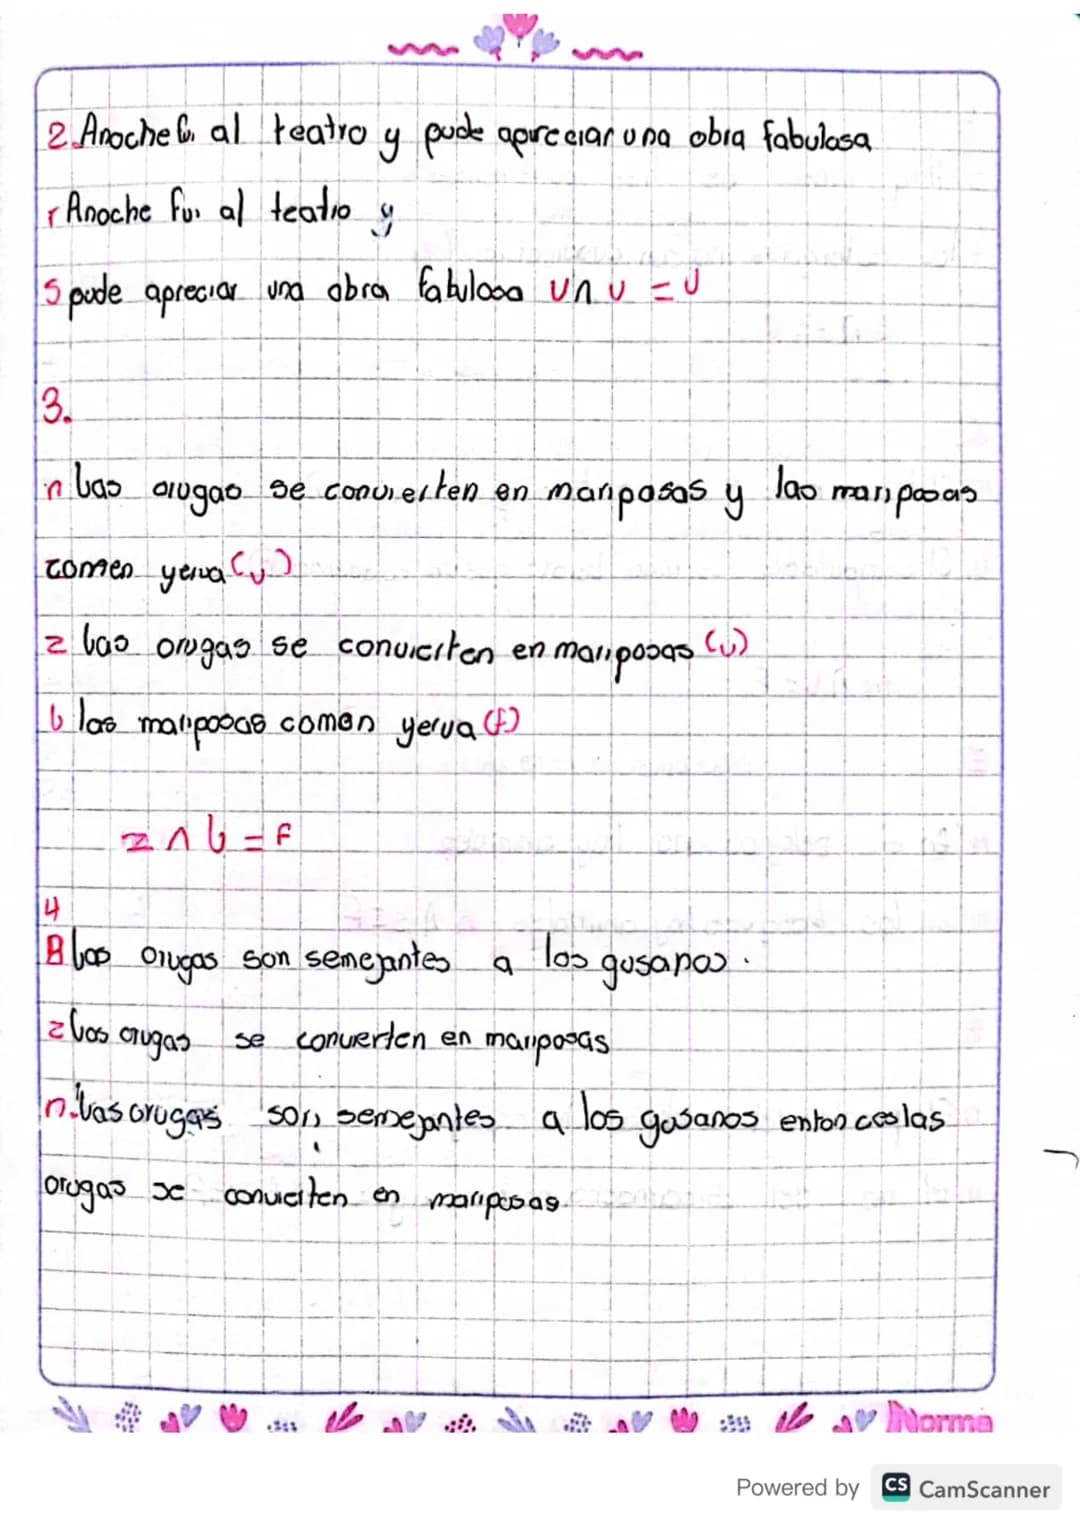 2. Anoche fui al teatro y pude aprreciar una obra fabulasa
r Anoche fui al teatro y
S pude apreciar una obra fabulosa V ∧ V = V
3.
n las orugas se convierten en mariposas y las mariposas
comen yerva (v)
z las orugas se convierten en mariposas (v)
b las mariposas comen yerva (f)
z ∧ b = F
4
B las orugas son semejantes a los gusanos.
z las orugas se convierten en mariposas
n. las orugas son semejantes a los gusanos entonces las
orugas se convierten en mariposas.
Norma
Powered by CS CamScanner